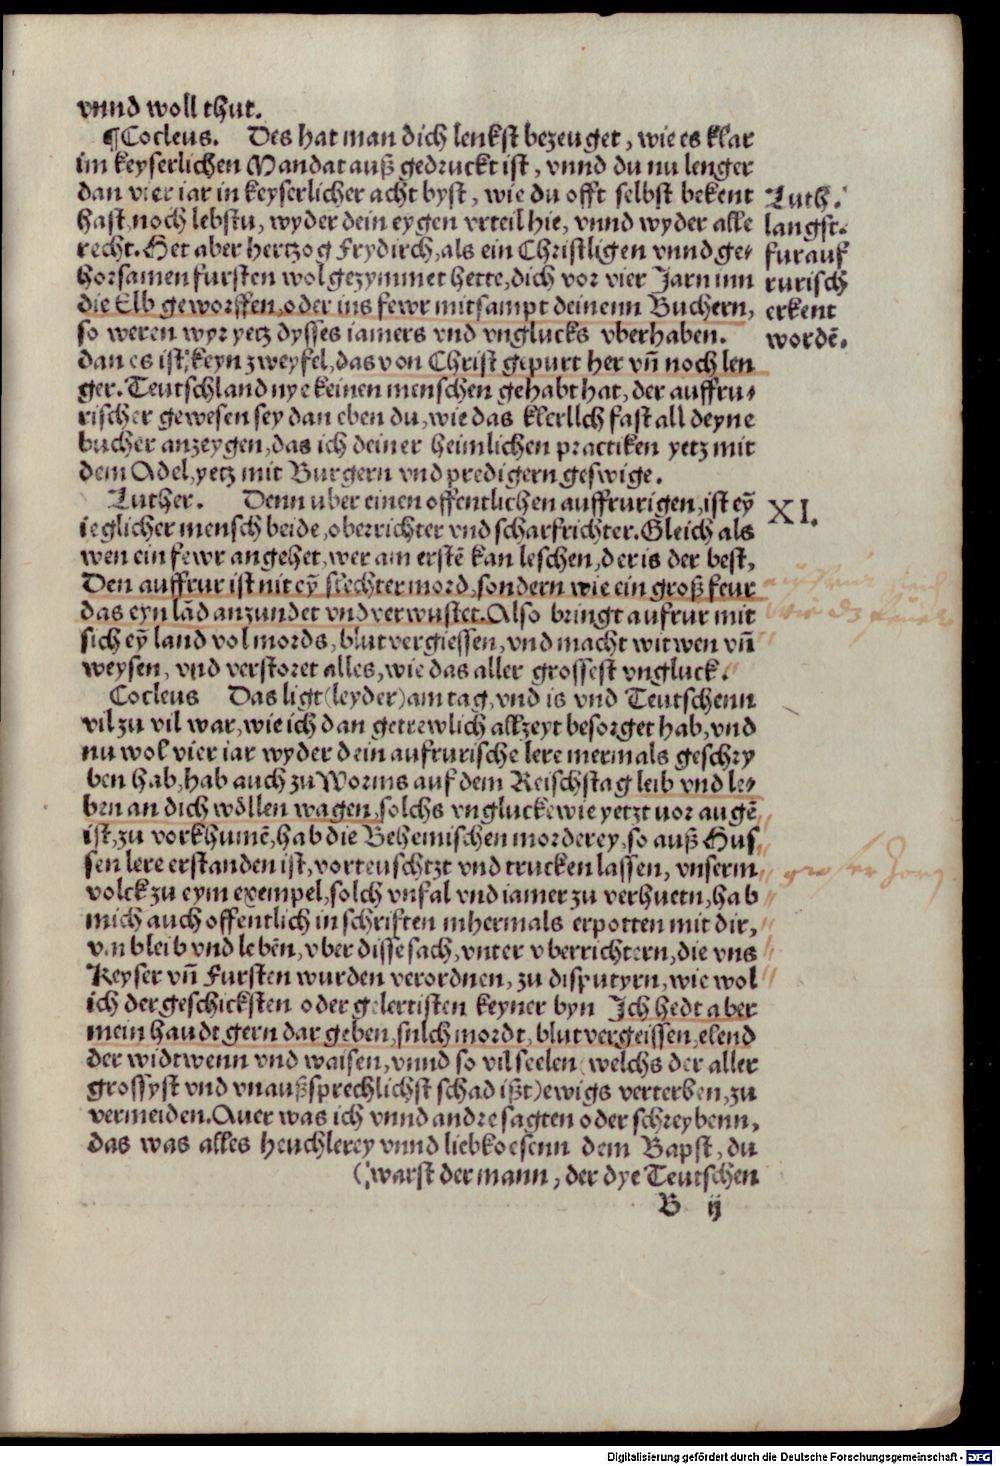 vnnd woll thut.
¶Cocleus. Des hat man dich lenkst bezeuget, wie es klar
im keyserlichen Mandat auß gedruckt ist, vnnd du nu lenger
dan vier iar in keyserlicher acht byst, wie du offt selbst bekent
hast, noch lebstu, wyder dein eygen vrteil hie, vnnd wyder alle
recht. Het aber hertzog Frydirch, als ein Christligen vnnd ge-
horsamen fursten wol gezymmet hette, dich vor vier Jarn inn
die Elb geworffen, oder ins fewr mitsampt deinenn Buchern,
so weren wyr yetz dysses iamers vnd vnglucks vberhaben.
dan es ist keyn zweyfel, das von Christ gepurt her vñ noch len
ger. Teutschland nye keinen menschen gehabt hat, der auffru-
rischer gewesen sey dan eben du, wie das klerllch fast all deyne
bucher anzeygen, das ich deiner heimlichen practiken yetz mit
dem Adel, yetz mit Burgern vnd predigern geswige.
Luth.
langst-
fur auf
rurisch
erkent
wordē.
Luther. Denn uber einen offentlichen auffrurigen, ist eỹ
ieglicher mensch beide, oberrichter vnd scharfrichter. Gleich als
wen ein fewr angehet, wer am erstē kan leschen, der is der best,
Den auffrur ist nit eỹ slechter mord, sondern wie ein groß feur
das eyn lãd anzundet vnd verwustet. Also bringt aufrur mit
sich eỹ land vol mords, blutvergiessen, vnd macht witwen vñ
weysen, vnd verstoret alles, wie das aller grossest vngluck.
XI.
Cocleus Das ligt (leyder) am tag, vnd is vnd Teutschenn
vil zu vil war, wie ich dan getrewlich allzeyt besorget hab, vnd
nu wol vier iar wyder dein aufrurische lere mermals geschry
ben hab, hab auch zu Worms auf dem Reischstag leib vnd le-
ben an dich wöllen wagen, solchs vngluckewie yetzt uor augē
ist, zu vorkhumē, hab die Behemischen morderey, so auß Hus
sen lere erstanden ist, vorteuschtzt vnd trucken lassen, vnserm
volck zu eym exempel, solch vnfal vnd iamer zu verhuetn, hab
mich auch offentlich in schriften mhermals erpotten mit dir,
von bleib vnd lebēn, vber disse sach, vnter vberrichtern, die vns
Keyser vñ Fursten wurden verordnen, zu disputyrn, wie wol
ich der geschicksten oder gelertisten keyner byn Jch hedt aber
mein haudt gern dar geben, sulch mordt, blutvergeissen, elend
der widtwenn vnd waisen, vnnd so vil seelen (welchs der aller
grossyst vnd vnaußsprechlichst schad ißt) ewigs verterben, zu
vermeiden. Auer was ich vnnd andre sagten oder schreybenn,
das was alles heuchlerey vnnd liebkoesenn dem Bapst, du
(warst der mann, der dye Teutschen
B ij
Digitalisierung gefördert durch die Deutsche Forschungsgemeinschaft - DFG